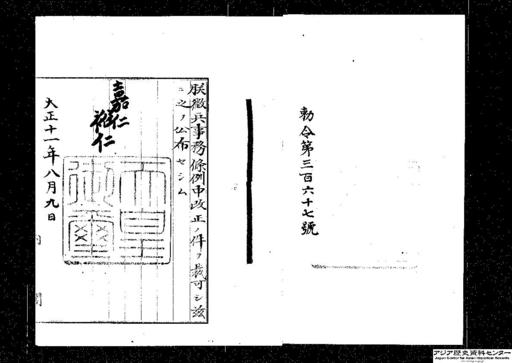 勅令第三百六十七號
朕徴兵事務條例中改正ノ件ヲ裁可シ茲
ニ之ヲ公布セシム
嘉仁
裕仁
天皇御璽
大正十一年八月九日
アジア歴史資料センター
Japan Center for Asian Historical Records